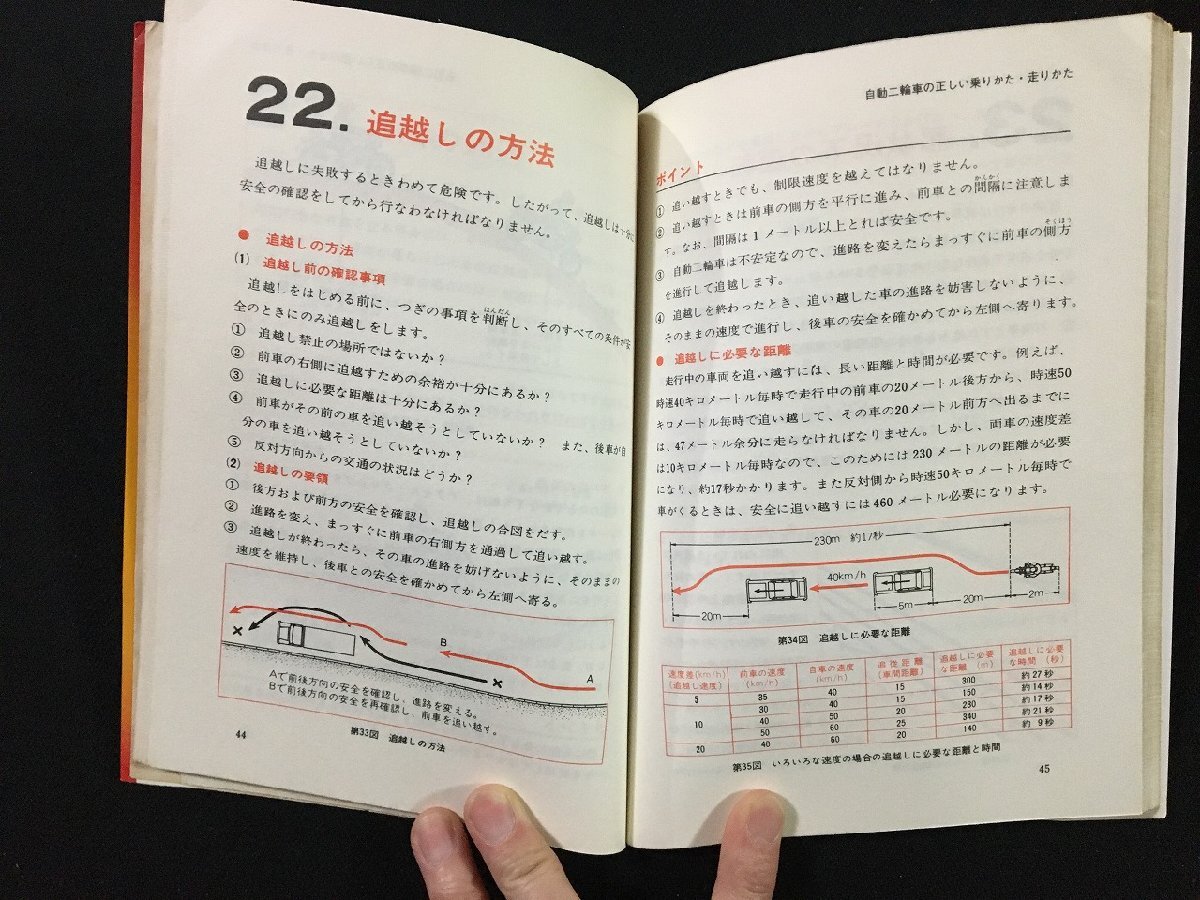 22. 追越しの方法
追越しに失敗するときわめて危険です。したがって、追越しは十分に
安全の確認をしてから行なわなければなりません。
● 追越しの方法
(1) 追越し前の確認事項
追越しをはじめる前に、つぎの事項を判断し、そのすべての条件が安
はんだん
全のときにのみ追越しをします。
① 追越し禁止の場所ではないか？
② 前車の右側に追越すための余裕が十分にあるか？
③ 追越しに必要な距離は十分にあるか？
④ 前車がその前の車を追い越そうとしていないか？ また、後車が自
分の車を追い越そうとしていないか？
⑤ 反対方向からの交通の状況はどうか？
(2) 追越しの要領
① 後方および前方の安全を確認し、追越しの合図をだす。
② 進路を変え、まっすぐに前車の右側方を通過して追い越す。
③ 追越しが終わったら、その車の進路を妨げないように、そのままの
速度を維持し、後車との安全を確かめてから左側へ寄る。
B
A
Aで前後方向の安全を確認し、進路を変える。
Bで前後方向の安全を再確認し、前車を追い越す。
44
第33図 追越しの方法
自動二輪車の正しい乗りかた・走りかた
ポイント
① 追い越すときでも、制限速度を越えてはなりません。
② 追い越すときは前車の側方を平行に進み、前車との間隔に注意しま
かんかく
す。なお、間隔は1メートル以上とれば安全です。
③ 自動二輪車は不安定なので、進路を変えたらまっすぐに前車の側方
そくほう
を進行して追越します。
④ 追越しを終わったとき、追い越した車の進路を妨害しないように、
そのままの速度で進行し、後車の安全を確かめてから左側へ寄ります。
● 追越しに必要な距離
走行中の車両を追い越すには、長い距離と時間が必要です。例えば、
時速40キロメートル毎時で走行中の前車の20メートル後方から、時速50
キロメートル毎時で追い越して、その車の20メートル前方へ出るまでに
は、47メートル余分に走らなければなりません。しかし、両車の速度差
は10キロメートル毎時なので、このためには230メートルの距離が必要
になり、約17秒かかります。また反対側から時速50キロメートル毎時で
車がくるときは、安全に追い越すには460メートル必要になります。
230m 約17秒
40km/h
20m
5m
20m
2m
第34図 追越しに必要な距離
速度差(km/h) 前車の速度 自車の速度 追従距離 追越しに必要 追越しに必要
(追越し速度) (km/h) (km/h) (車間距離) な距離 (m) な時間 (秒)
5 35 40 15 300 約27秒
30 40 15 150 約14秒
10 40 50 20 230 約17秒
50 60 25 340 約21秒
20 40 60 20 140 約9秒
第35図 いろいろな速度の場合の追越しに必要な距離と時間
45